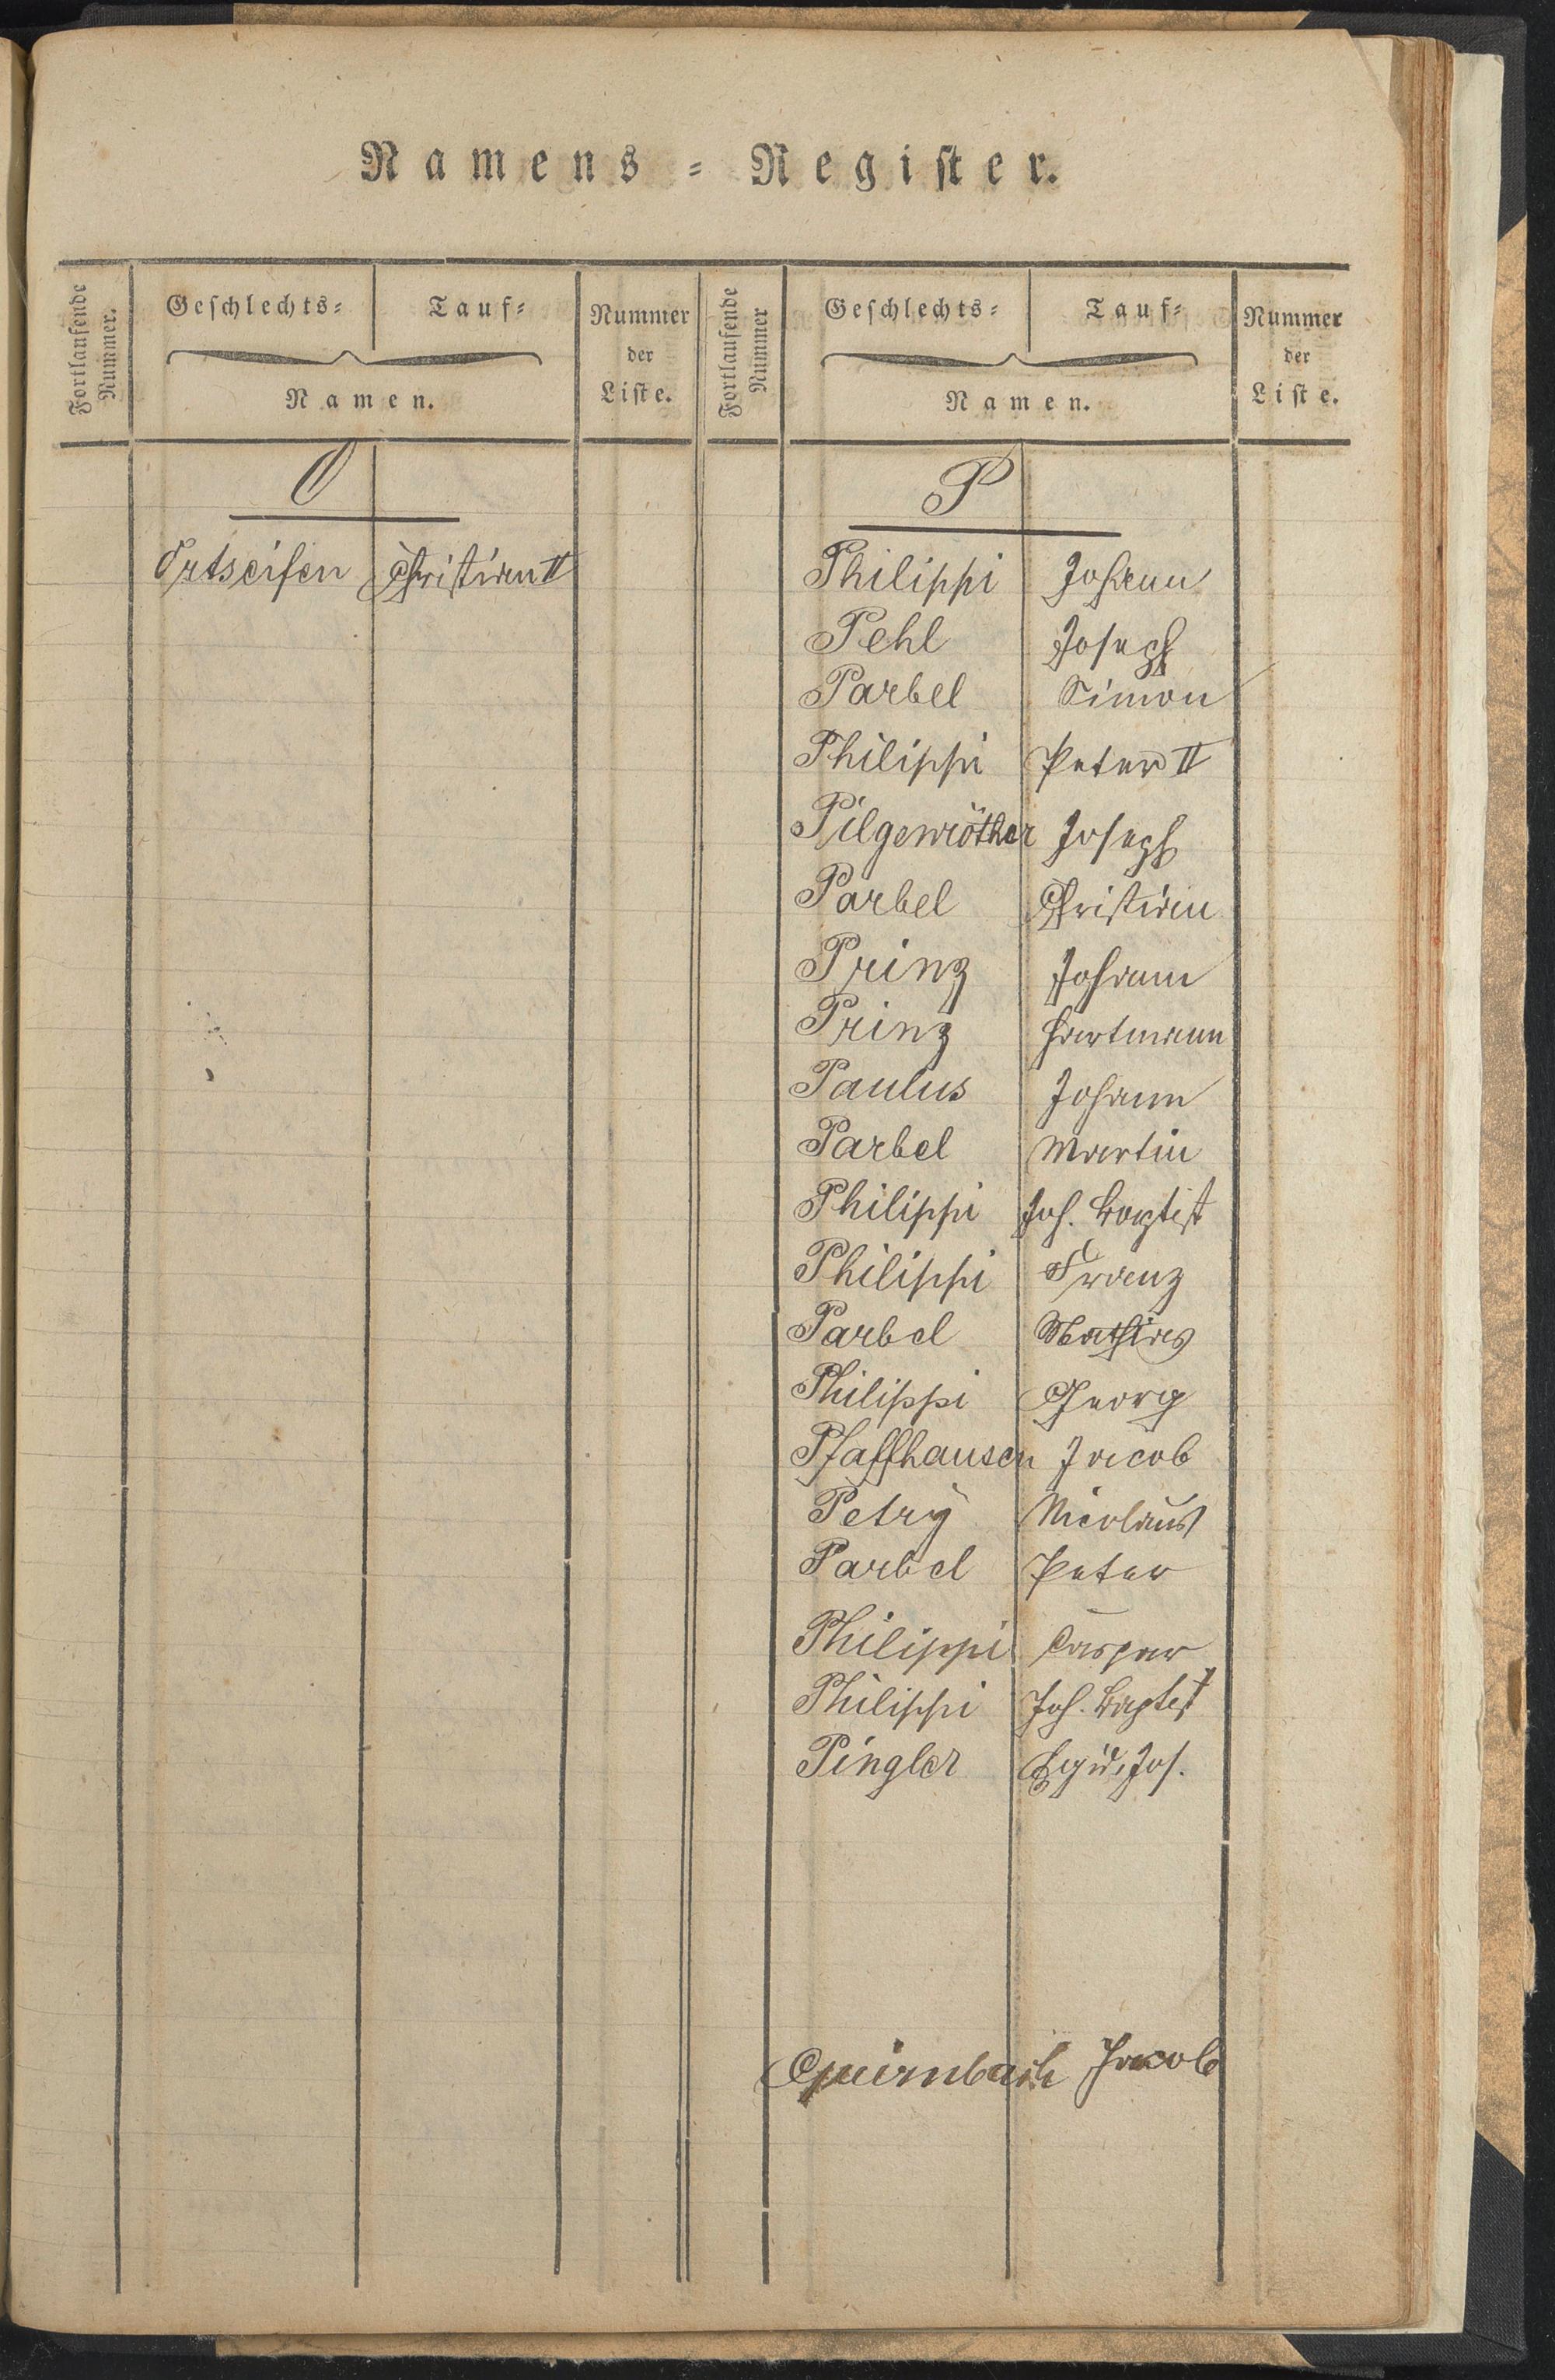 Namens-Register.
Fortlaufende Nummer.
Geschlechts-
Tauf-
Namen.
Nummer
der
Liste.
Fortlaufende Nummer
Geschlechts-
Tauf-
Namen.
Nummer
der
Liste.
O
Ortseifen Christian II
P
Philippi Johann
Pehl Joseph
Parbel Simon
Philippi Peter II
Pilgenröther Joseph
Parbel Christian
Prinz Johann
Prinz Hartmann
Paulus Johann
Parbel Martin
Philippi Joh. Baptist
Philippi Franz
Parbel Mathias
Philippi Georg
Pfaffhausen Jacob
Petry Nicolaus
Parbel Peter
Philippi Caspar
Philippi Joh. Baptist
Pingler Egid. Jos.
Quirnbach Jacob